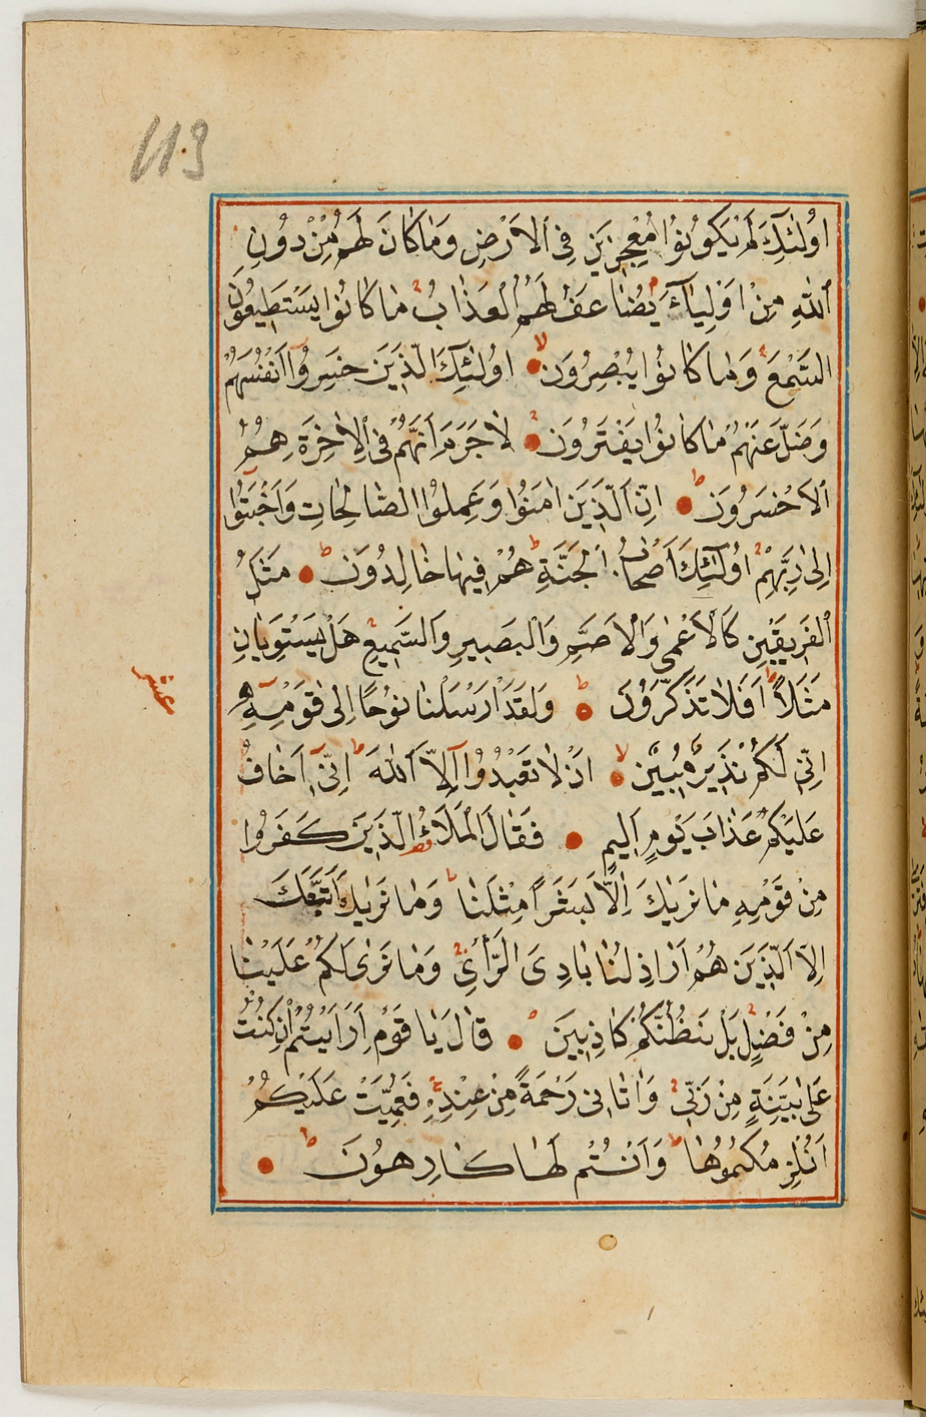 113
اُولٰئِكَ لَمْ يَكُونُوا مُعْجِزِينَ فِي الْاَرْضِ وَمَا كَانَ لَهُمْ مِنْ دُونِ
اللّٰهِ مِنْ اَوْلِيَاۤءَ يُضَاعَفُ لَهُمُ الْعَذَابُ مَا كَانُوا يَسْتَطِيعُونَ
السَّمْعَ وَمَا كَانُوا يُبْصِرُونَ اُولٰئِكَ الَّذِينَ خَسِرُوا اَنْفُسَهُمْ
وَضَلَّ عَنْهُمْ مَا كَانُوا يَفْتَرُونَ لَا جَرَمَ اَنَّهُمْ فِي الْاٰخِرَةِ هُمُ
الْاَخْسَرُونَ اِنَّ الَّذِينَ اٰمَنُوا وَعَمِلُوا الصَّالِحَاتِ وَاَخْبَتُوا
اِلٰى رَبِّهِمْ اُولٰئِكَ اَصْحَابُ الْجَنَّةِ هُمْ فِيهَا خَالِدُونَ مَثَلُ
الْفَرِيقَيْنِ كَالْاَعْمٰى وَالْاَصَمِّ وَالْبَصِيرِ وَالسَّمِيعِ هَلْ يَسْتَوِيَانِ
مَثَلًا اَفَلَا تَذَكَّرُونَ وَلَقَدْ اَرْسَلْنَا نُوحًا اِلٰى قَوْمِهِ
عشر
اِنِّي لَكُمْ نَذِيرٌ مُبِينٌ اَنْ لَا تَعْبُدُوا اِلَّا اللّٰهَ اِنِّي اَخَافُ
عَلَيْكُمْ عَذَابَ يَوْمٍ اَلِيمٍ فَقَالَ الْمَلَاُ الَّذِينَ كَفَرُوا
مِنْ قَوْمِهِ مَا نَرٰيكَ اِلَّا بَشَرًا مِثْلَنَا وَمَا نَرٰيكَ اتَّبَعَكَ
اِلَّا الَّذِينَ هُمْ اَرَاذِلُنَا بَادِىَ الرَّأْيِ وَمَا نَرٰى لَكُمْ عَلَيْنَا
مِنْ فَضْلٍ بَلْ نَظُنُّكُمْ كَاذِبِينَ قَالَ يَا قَوْمِ اَرَاَيْتُمْ اِنْ كُنْتُ
عَلٰى بَيِّنَةٍ مِنْ رَبِّي وَاٰتَانِي رَحْمَةً مِنْ عِنْدِهِ فَعُمِّيَتْ عَلَيْكُمْ
اَنُلْزِمُكُمُوهَا وَاَنْتُمْ لَهَا كَارِهُونَ